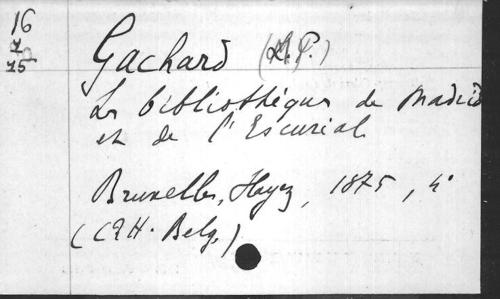 16
7
15
Gachard (L. P.)
Les bibliothèques de Madrid
et de l'Escurial
Bruxelles, Hayez, 1875, 4°
(CRH. Belg.)